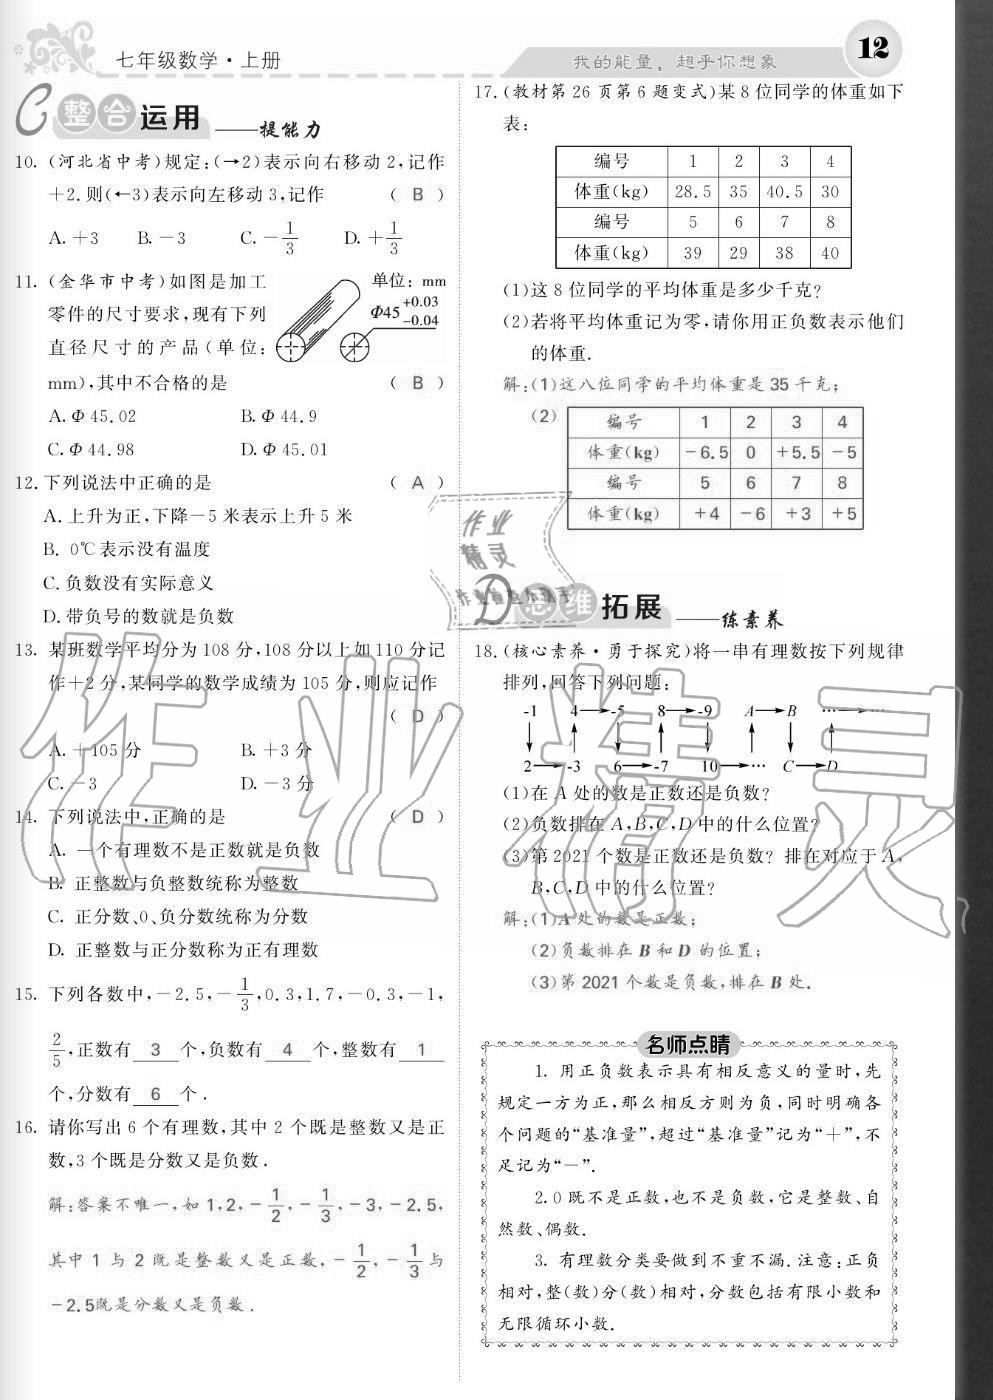 七年级数学·上册
我的能量，超乎你想象
12
C 整合运用——提能力
10. (河北省中考)规定:(→2)表示向右移动2,记作
+2.则(←3)表示向左移动3,记作 ( B )
A. +3 B. -3 C. -1/3 D. +1/3
11. (金华市中考)如图是加工
零件的尺寸要求,现有下列
直径尺寸的产品(单位:
mm),其中不合格的是 ( B )
单位: mm
Φ45 +0.03 -0.04
A. Φ 45.02 B. Φ 44.9
C. Φ 44.98 D. Φ 45.01
12. 下列说法中正确的是 ( A )
A. 上升为正,下降-5米表示上升5米
B. 0℃表示没有温度
C. 负数没有实际意义
D. 带负号的数就是负数
13. 某班数学平均分为108分,108分以上如110分记
作+2分,某同学的数学成绩为105分,则应记作
( D )
A. +105分 B. +3分
C. -3 D. -3分
14. 下列说法中,正确的是 ( D )
A. 一个有理数不是正数就是负数
B. 正整数与负整数统称为整数
C. 正分数、0、负分数统称为分数
D. 正整数与正分数统称为正有理数
15. 下列各数中,-2.5,-1/3,0.3,1.7,-0.3,-1,
2/5,正数有 3 个,负数有 4 个,整数有 1
个,分数有 6 个.
16. 请你写出6个有理数,其中2个既是整数又是正
数,3个既是分数又是负数.
解:答案不唯一,如1,2,-1/2,-1/3,-3,-2.5,
其中1与2既是整数又是正数,-1/2,-1/3与
-2.5既是分数又是负数.
17. (教材第26页第6题变式)某8位同学的体重如下
表:
编号 1 2 3 4
体重(kg) 28.5 35 40.5 30
编号 5 6 7 8
体重(kg) 39 29 38 40
(1)这8位同学的平均体重是多少千克?
(2)若将平均体重记为零,请你用正负数表示他们
的体重.
解:(1)这八位同学的平均体重是35千克;
(2)
编号 1 2 3 4
体重(kg) -6.5 0 +5.5 -5
编号 5 6 7 8
体重(kg) +4 -6 +3 +5
作业
精灵
D 思维拓展——练素养
18. (核心素养·勇于探究)将一串有理数按下列规律
排列,回答下列问题:
-1 4→-5 8→-9 A→B …→…
↓ ↑ ↓ ↑ ↓ ↑ ↓ ↑
2→-3 6→-7 10→… C→D
(1)在A处的数是正数还是负数?
(2)负数排在A,B,C,D中的什么位置?
(3)第2021个数是正数还是负数? 排在对应于A,
B,C,D中的什么位置?
解:(1)A处的数是正数;
(2)负数排在B和D的位置;
(3)第2021个数是负数,排在B处.
名师点睛
1. 用正负数表示具有相反意义的量时,先
规定一方为正,那么相反方则为负,同时明确各
个问题的“基准量”,超过“基准量”记为“+”,不
足记为“-”.
2.0既不是正数,也不是负数,它是整数、自
然数、偶数.
3. 有理数分类要做到不重不漏.注意:正负
相对,整(数)分(数)相对,分数包括有限小数和
无限循环小数.
作业精灵